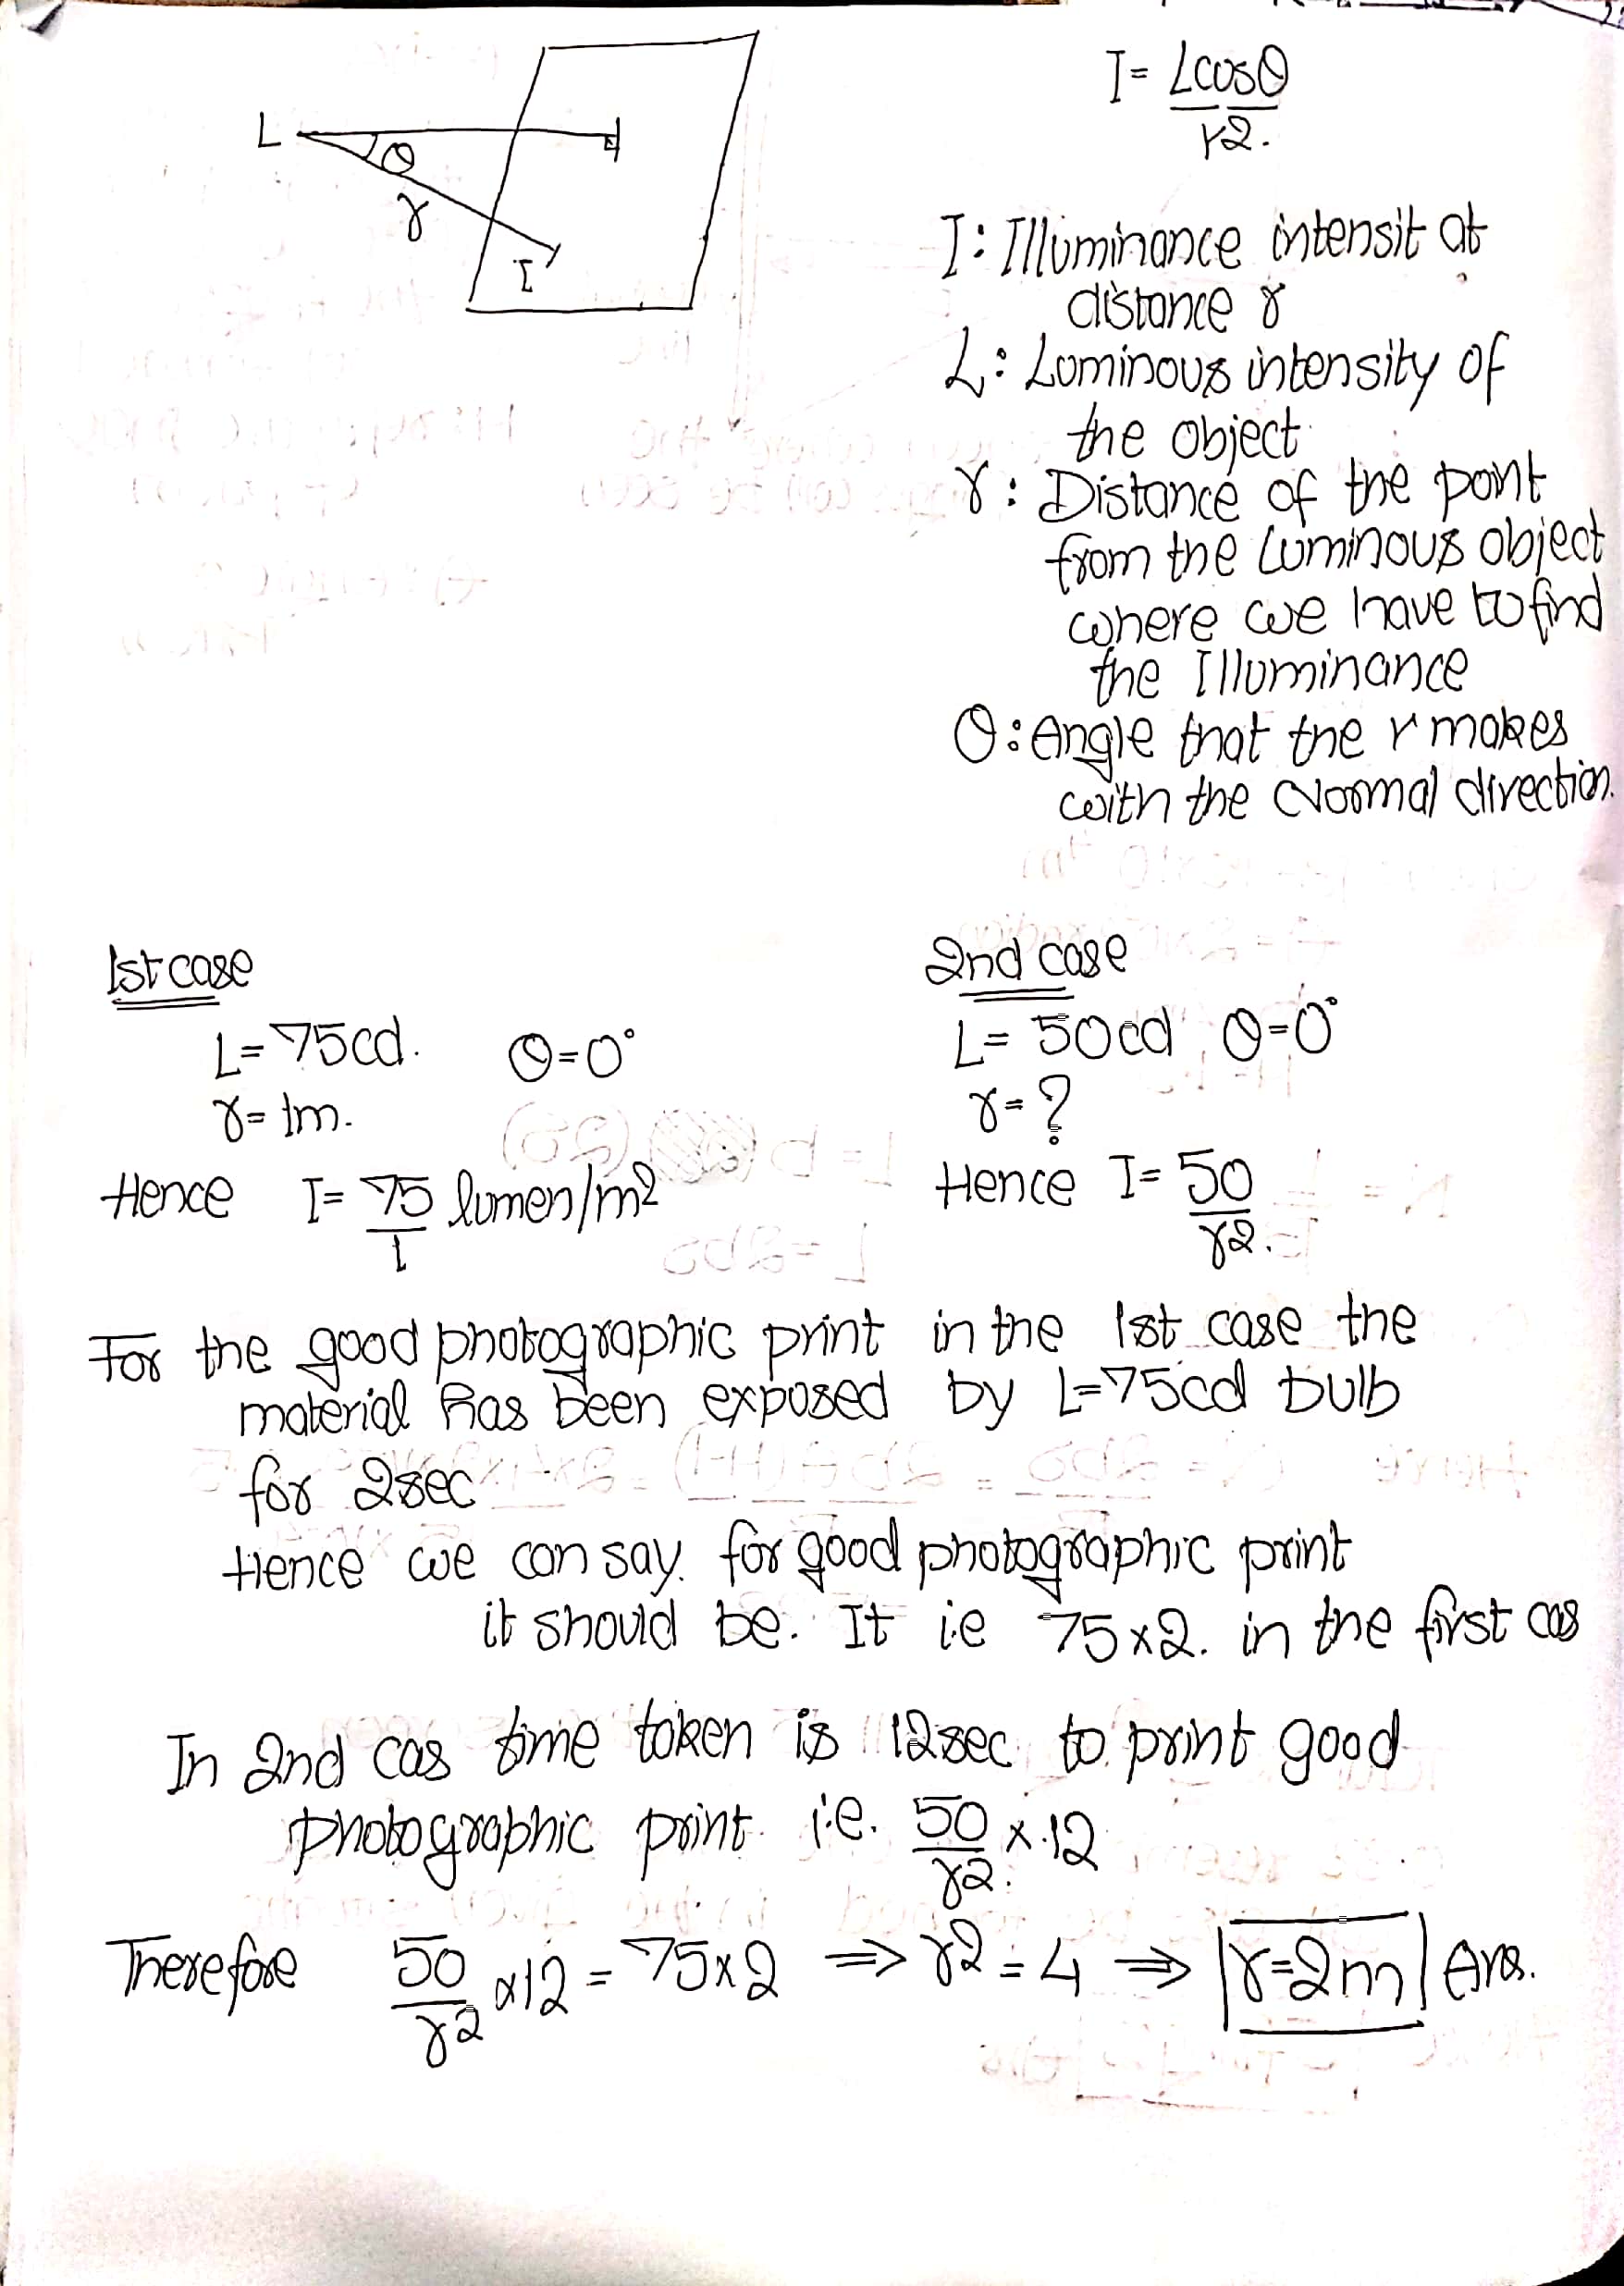 L
θ
r
I
I = Lcosθ
r2.
I: Illuminance intensit at
distance r
L: Luminous intensity of
the object
r: Distance of the point
from the luminous object
where we have to find
the Illuminance
θ: Angle that the r makes
with the Normal direction.
1st case
L= 75cd. θ=0°
r= 1m.
Hence I= 75 lumen/m2
1
2nd case
L= 50cd θ=0°
r=?
Hence I= 50
r2.
For the good photographic print in the 1st case the
material has been exposed by L=75cd bulb
for 2sec
Hence we can say. for good photographic print
it should be. It i.e 75x2. in the first cas
In 2nd cas time taken is 12sec to print good
photographic print i.e. 50 x 12
r2.
Therefore 50 x12 = 75x2 => r2 = 4 => r=2m Ans.
r2